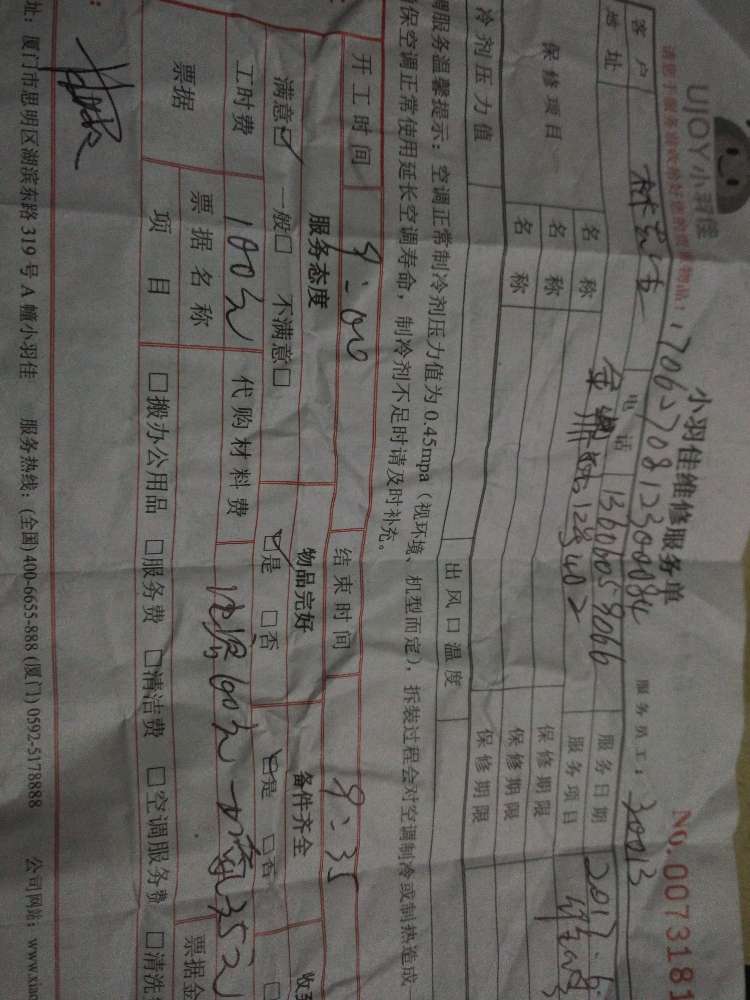 UJOY小羽佳
小羽佳维修服务单
No.0073181
1706270812300084
服务员工：30013
客户
电话 13606059066
服务日期 2017.6.
地址
12号402
服务项目
保修项目
名称
名称 保修期限
名称 保修期限
保修期限
冷剂压力值
出风口温度
调服务温馨提示：空调正常制冷剂压力值为0.45mpa（视环境、机型而定），拆装过程会对空调制冷或制热造成
保空调正常使用延长空调寿命，制冷剂不足时请及时补充。
开工时间 9:00 结束时间 9:35
服务态度 物品完好 备件齐全
满意☑ 一般□ 不满意□ ☑是 □否 ☑是 □否
工时费 100元 代购材料费
票据 票据名称
票据金
项目 □搬办公用品 □服务费 □清洁费 □空调服务费 □清洗
址：厦门市思明区湖滨东路319号A幢小羽佳 服务热线：(全国)400-6655-888 (厦门)0592-5178888 公司网站：www.xiao